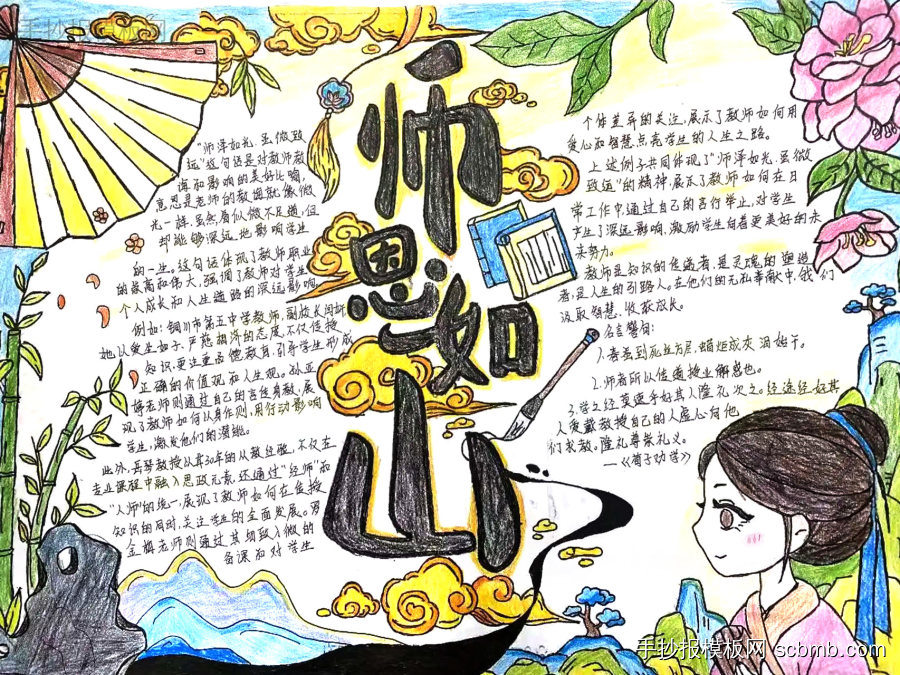 手抄报模板网
师恩如山
"师泽如光,虽微致
远"这句话是对教师教
诲和影响的美好比喻,
意思是老师的教诲就像微
光一样,虽然看似微不足道,但
却能够深远地影响学生
的一生。这句话体现了教师职业
的崇高和伟大,强调了教师对学生
个人成长和人生道路的深远影响。
例如:铜川市第五中学教师,副校长闫妍
她以爱生如子、严慈相济的态度,不仅传授
知识,更注重品德教育,引导学生形成
正确的价值观和人生观。孙亚
婷老师则通过自己的言传身教,展
现了教师如何以身作则,用行动影响
学生,激发他们的潜能。
此外,吴琴教授认真30年的从教经验,不仅在
专业课程中融入思政元素,还通过"经师"和
"人师"的统一,展现了教师如何在传授
知识的同时,关注学生的全面发展。罗
金梅老师则通过其细致入微的
备课和对学生
个体差异的关注,展示了教师如何用
爱心和智慧点亮学生的人生之路。
上述例子共同体现了"师泽如光,虽微
致远"的精神,展示了教师如何在日
常工作中,通过自己的言行举止,对学生
产生了深远影响,激励学生向着更美好的未
来努力。
教师是知识的传播者,是灵魂的塑造
者,是人生的引路人。在他们的无私奉献中,我们
汲取智慧,收获成长。
名言警句:
1.春蚕到死丝方尽,蜡炬成灰泪始干。
2.师者所以传道授业解惑也。
3.学之经莫速乎好其人,隆礼次之。经途经好其
人爱戴教授自己的人虚心向他
们求教。隆礼尊崇礼义。
—《荀子劝学》
手抄报模板网 scbmb.com